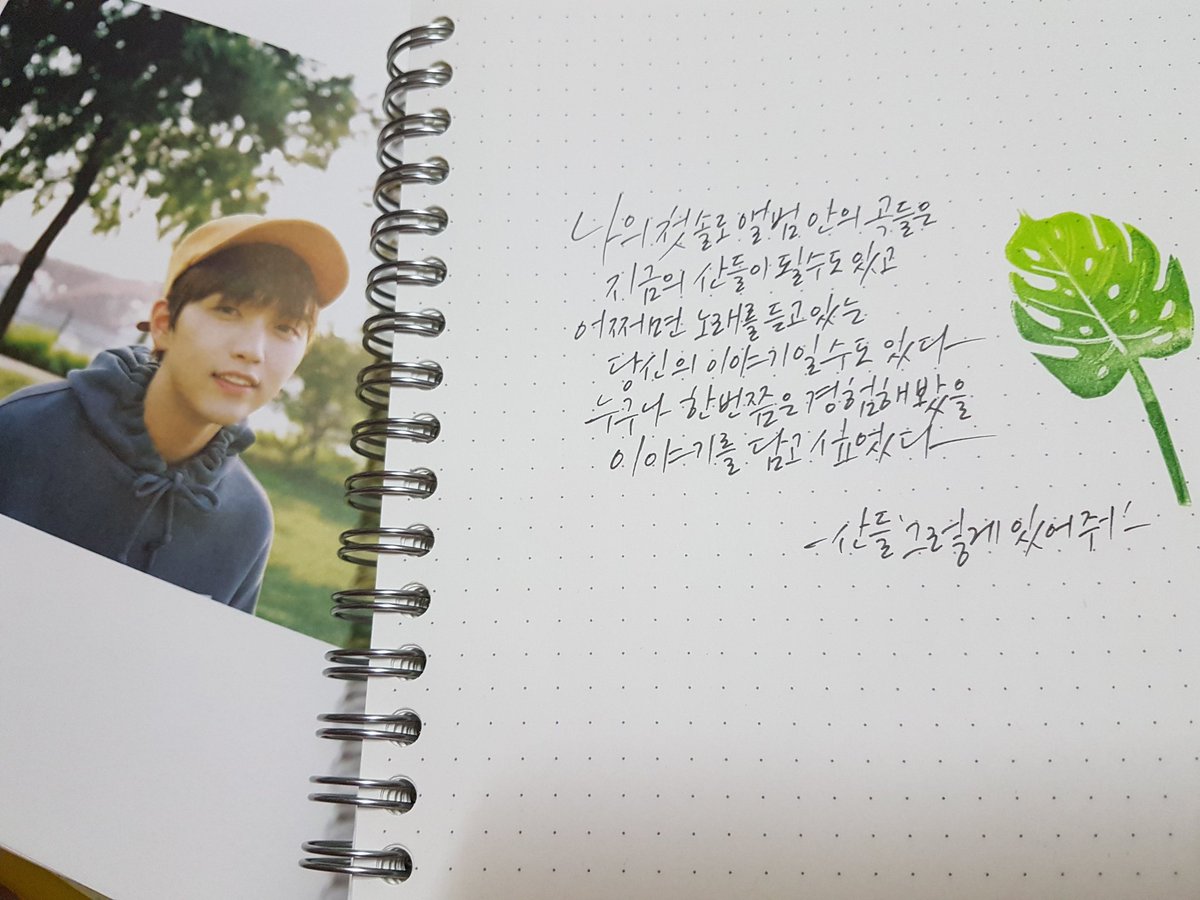 나의 첫 솔로 앨범 안의 곡들은
지금의 산들이 될 수도 있고
어쩌면 노래를 듣고 있는
당신의 이야기일 수도 있다
누구나 한번쯤은 경험해 봤을
이야기를 담고 싶었다
- 산들 '그렇게 있어 줘' -